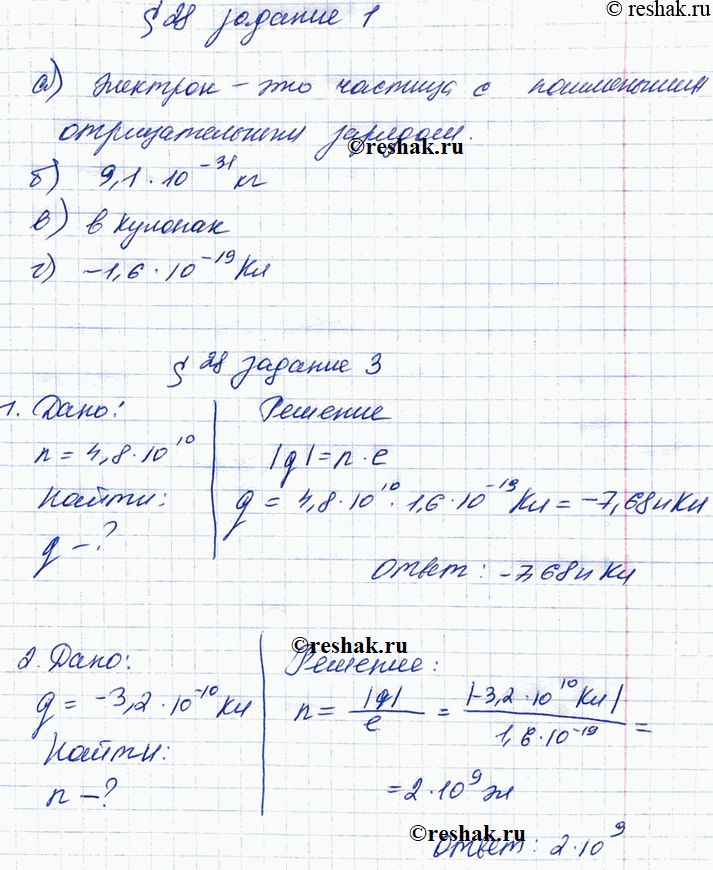 © reshak.ru
§ 28 задание 1
а) Электрон – это частица с наименьшим
отрицательным зарядом.
© reshak.ru
б) 9,1 · 10⁻³¹ кг
в) в кулонах
г) –1,6 · 10⁻¹⁹ Кл
§ 28 задание 3
1. Дано: Решение
n = 4,8 · 10¹⁰ |q| = n · e
Найти: q = 4,8 · 10¹⁰ · 1,6 · 10⁻¹⁹ Кл = –7,68 нКл
q – ?
Ответ: –7,68 нКл
© reshak.ru
2. Дано: Решение:
q = –3,2 · 10⁻¹⁰ Кл n = |q| / e = |–3,2 · 10¹⁰ Кл| / 1,6 · 10⁻¹⁹ =
Найти:
n – ? = 2 · 10⁹ эл
© reshak.ru
Ответ: 2 · 10⁹